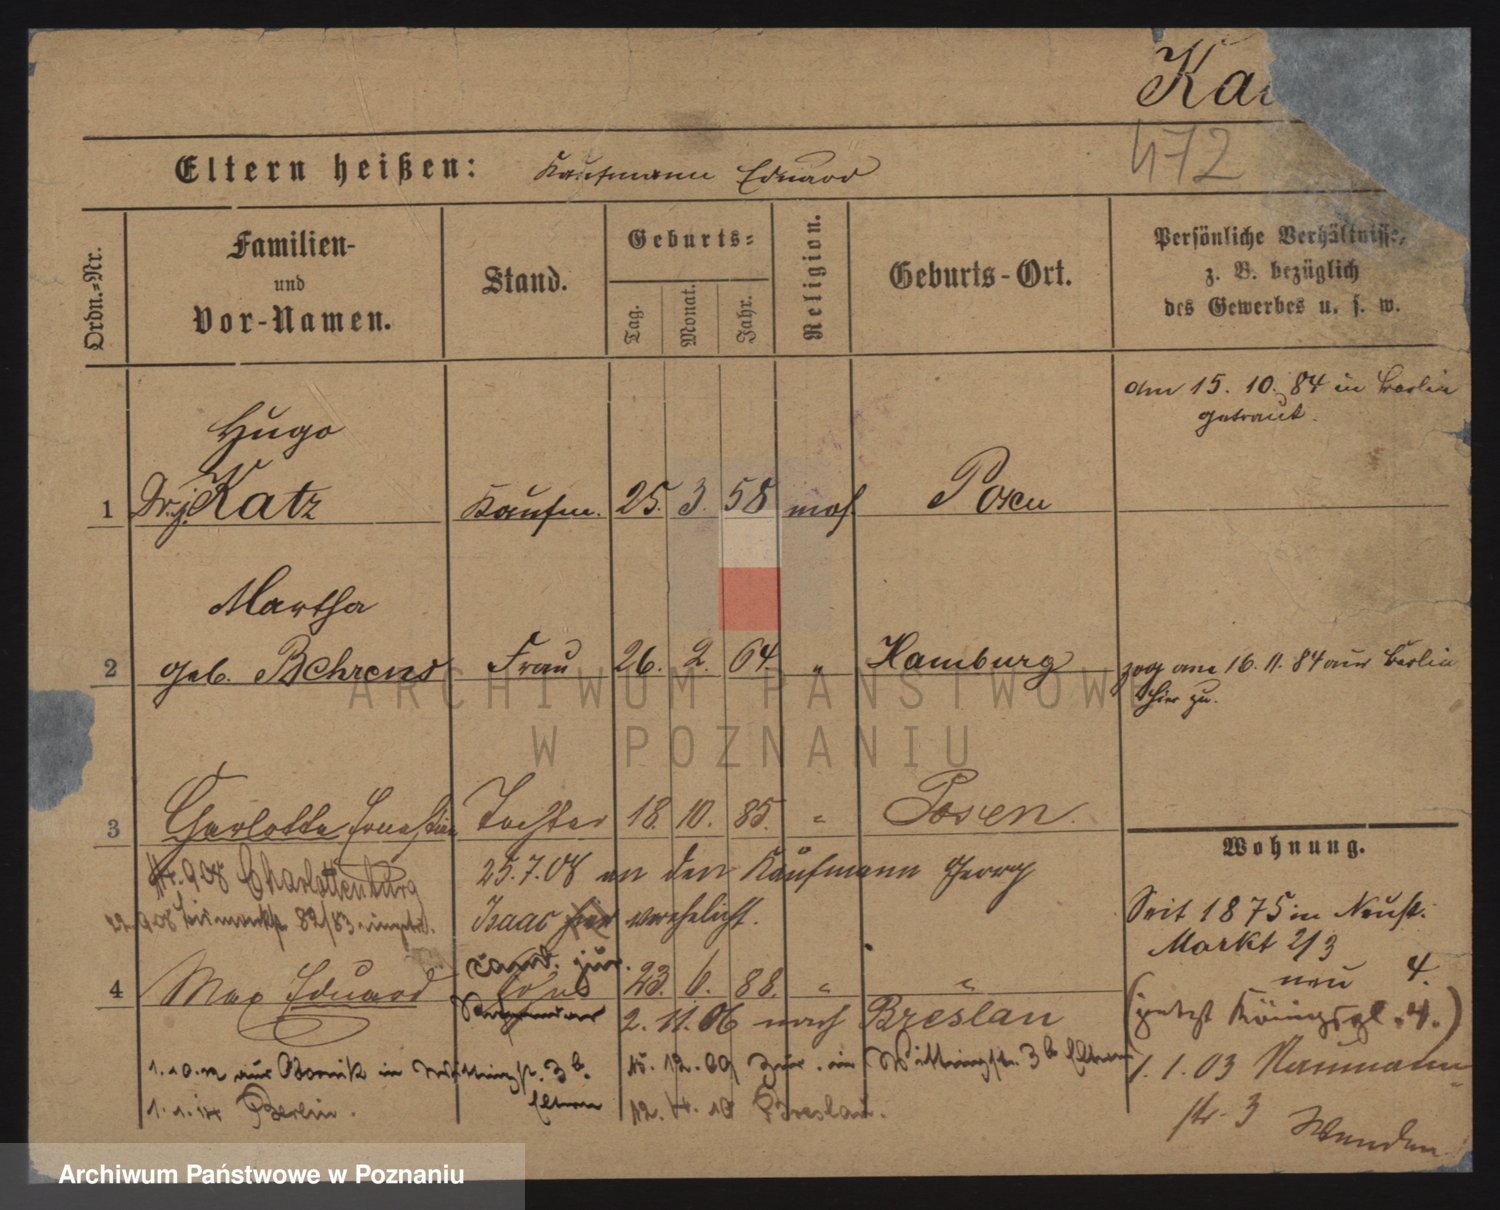 Ka
472
Eltern heißen: Kaufmann Eduard
Ordn.-Nr.
Familien-
und
Vor-Namen.
Stand.
Geburts-
Tag.
Monat.
Jahr.
Religion.
Geburts-Ort.
Persönliche Verhältnisse,
z. B. bezüglich
des Gewerbes u. s. w.
am 15. 10. 84 in Berlin
getraut.
Hugo
1 Dr. j. Katz Kaufm. 25. 3. 58 mos. Posen
Martha
2 geb. Behrens Frau 26. 2. 64. " Hamburg zog am 16. 11. 84 aus Berlin
hier zu.
ARCHIWUM PAŃSTWOWE
W POZNANIU
3 Charlotte Ernestine Tochter 18. 10. 85. " Posen.
Wohnung.
908 Charlottenburg 25.7.08 an den Kaufmann Georg
82/83 Isaac hier verehelicht.
Seit 1875 in Neust.
Markt 2/3
neu 4.
cand. jur.
4 Max Eduard Sohn 23. 6. 88. " "
(jetzt Königspl. 4.)
Referendar 2. 11. 06 nach Breslau
1.10.12 aus in Wittingstr. 3b. Eltern
15. 12. 09 zur. in Wittingstr. 3b Eltern
1. 1. 03 Naumann-
str. 3
1. 1. 14 Berlin. 12. 4. 10 Breslau.
Wenden
Archiwum Państwowe w Poznaniu